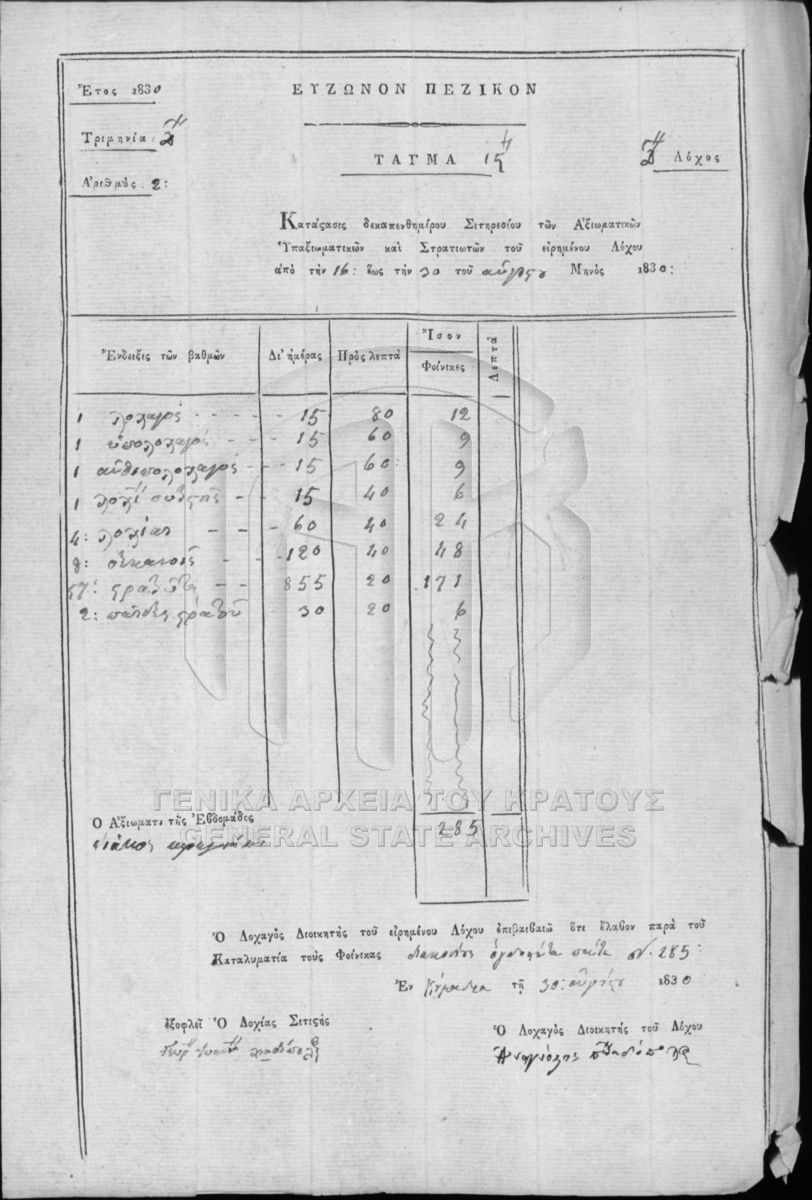 Ἔτος 1830
ΕΥΖΩΝΟΝ ΠΕΖΙΚΟΝ
Τριμηνία
ΤΑΓΜΑ 15
Λόχος
Ἀριθμὸς 2:
Κατάςασις δεκαπενθημέρου Σιτηρεσίου τῶν Ἀξιωματικῶν
Ὑπαξιωματικῶν καὶ Στρατιωτῶν τοῦ εἰρημένου Λόχου
ἀπὸ τὴν 16: ἕως τὴν 30 τοῦ Μηνὸς 1830:
Ἔνδειξις τῶν βαθμῶν Δι' ἡμέρας Πρὸς λεπτὰ Ἴσον Φοίνικες Λεπτὰ
1 λοχαγός 15 80 12
1 ὑπολοχαγός 15 60 9
1 ἀνθυπολοχαγός 15 60: 9
1 15 40 6
4: λοχίαι 60 40 24
8: 120 40 48
57: 855 20 171
2: 30 20 6
285
Ὁ Ἀξιωματι τῆς Ἑβδομάδος
Ὁ Λοχαγὸς Διοικητὴς τοῦ εἰρημένου Λόχου ἐπιβαιβαιῶ ὅτι ἔλαβον παρὰ τοῦ
Καταλυματία τοὺς Φοίνικας διακοσίους ὀγδοήντα πέντε 285:
Ἐν τῇ 30: 1830
ἐξοφλεῖ Ὁ Λοχίας Σιτιςὴς
Ὁ Λοχαγὸς Διοικητὴς τοῦ Λόχου
ΓΕΝΙΚΑ ΑΡΧΕΙΑ ΤΟΥ ΚΡΑΤΟΥΣ
GENERAL STATE ARCHIVES